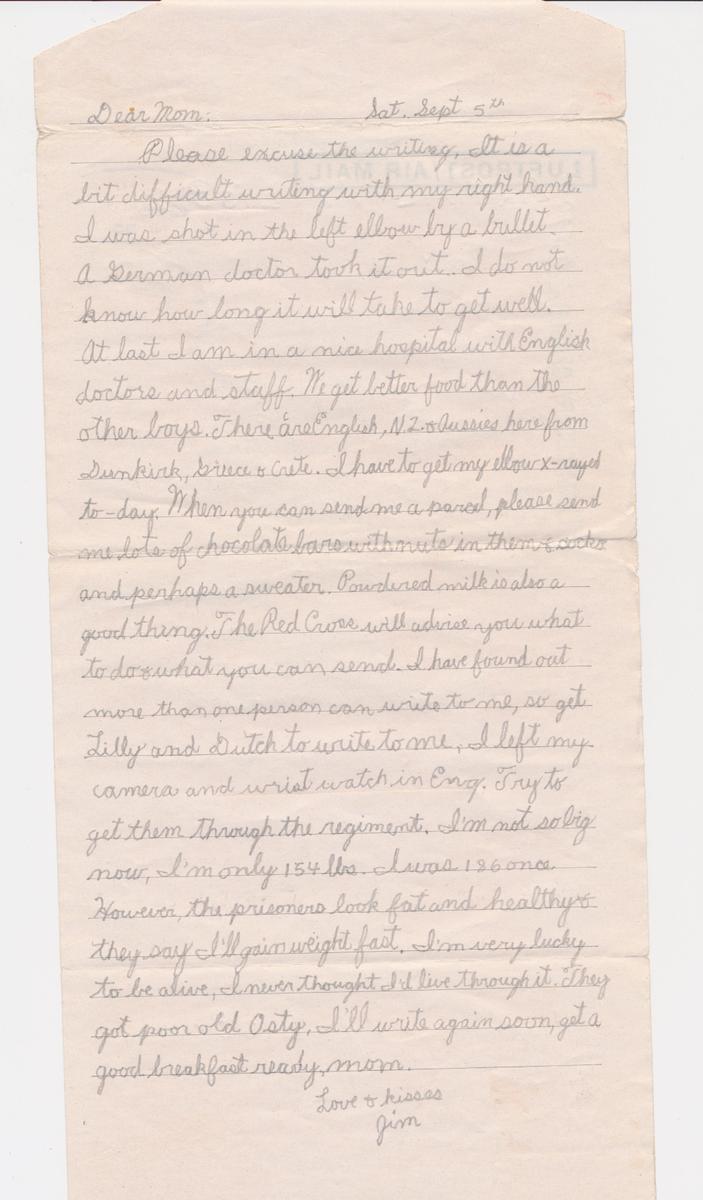 Dear Mom: Sat. Sept 5th
Please excuse the writing, It is a
bit difficult writing with my right hand.
I was shot in the left elbow by a bullet.
A German doctor took it out. I do not
know how long it will take to get well.
At last I am in a nice hospital with English
doctors and staff. We get better food than the
other boys. There are English, N.Z. & Aussies here from
Dunkirk, Greece & Crete. I have to get my elbow x-rayed
to-day. When you can send me a parcel, please send
me lots of chocolate bars with nuts in them & socks
and perhaps a sweater. Powdered milk is also a
good thing. The Red Cross will advise you what
to do & what you can send. I have found out
more than one person can write to me, so get
Lilly and Dutch to write to me. I left my
camera and wrist watch in Eng. Try to
get them through the regiment. I'm not so big
now, I'm only 154 lbs. I was 186 once.
However, the prisoners look fat and healthy &
they say I'll gain weight fast. I'm very lucky
to be alive, I never thought I'd live through it. They
got poor old Osty. I'll write again soon, get a
good breakfast ready, mom.
Love & kisses
Jim
LUFTPOST / AIR MAIL